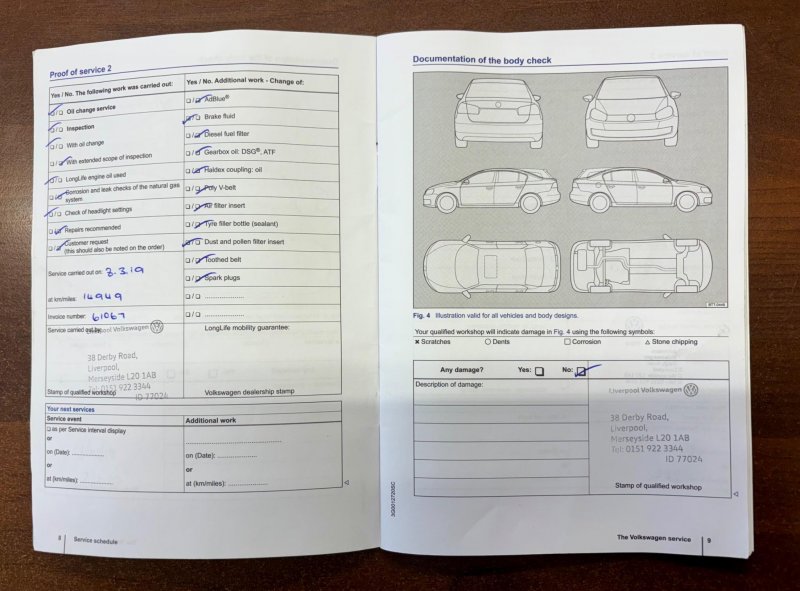 Proof of service 2
Yes / No. The following work was carried out:
☑/☐ Oil change service
☑/☐ Inspection
☑/☐ With oil change
☐/☑ With extended scope of inspection
☑/☐ LongLife engine oil used
☐/☑ Corrosion and leak checks of the natural gas
system
☑/☐ Check of headlight settings
☐/☑ Repairs recommended
☐/☑ Customer request
(this should also be noted on the order)
Service carried out on: 8.3.19
at km/miles: 14949
Invoice number: 61067
Service carried out by:
Liverpool Volkswagen
38 Derby Road,
Liverpool,
Merseyside L20 1AB
Tel: 0151 922 3344
ID 77024
Stamp of qualified workshop
Yes / No. Additional work - Change of:
☐/☑ AdBlue®
☑/☐ Brake fluid
☐/☑ Diesel fuel filter
☐/☑ Gearbox oil: DSG®, ATF
☐/☑ Haldex coupling: oil
☐/☑ Poly V-belt
☐/☑ Air filter insert
☐/☑ Tyre filler bottle (sealant)
☑/☐ Dust and pollen filter insert
☐/☑ Toothed belt
☐/☑ Spark plugs
☐/☐ ....................
☐/☐ ....................
LongLife mobility guarantee:
Volkswagen dealership stamp
Your next services
Service event
☐ as per Service interval display
or
on (Date): ................
or
at (km/miles): ................
Additional work
........................................
on (Date): ................
or
at (km/miles): ................
8 Service schedule
Documentation of the body check
Fig. 4 Illustration valid for all vehicles and body designs.
Your qualified workshop will indicate damage in Fig. 4 using the following symbols:
✖ Scratches ○ Dents ☐ Corrosion △ Stone chipping
Any damage? Yes: ☐ No: ☑
Description of damage:
Liverpool Volkswagen
38 Derby Road,
Liverpool,
Merseyside L20 1AB
Tel: 0151 922 3344
ID 77024
Stamp of qualified workshop
The Volkswagen service 9